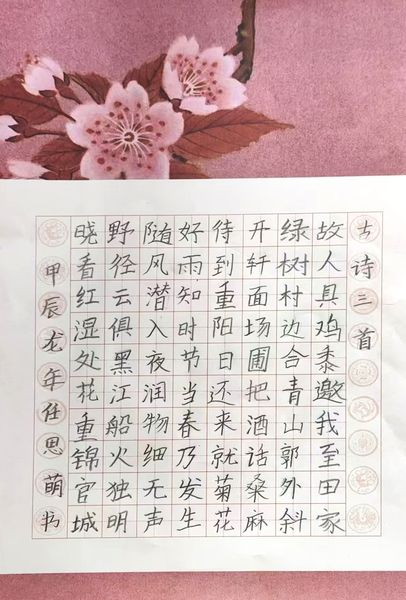 古诗三首
故人具鸡黍邀我至田家
绿树村边合青山郭外斜
开轩面场圃把酒话桑麻
待到重阳日还来就菊花
好雨知时节当春乃发生
随风潜入夜润物细无声
野径云俱黑江船火独明
晓看红湿处花重锦官城
甲辰龙年任思萌书